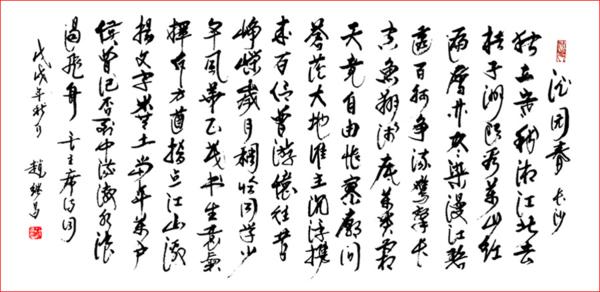 沁园春 长沙
独立寒秋湘江北去
桔子洲头看万山红
遍层林尽染漫江碧
透百舸争流鹰击长
空鱼翔浅底万类霜
天竞自由怅寥廓问
苍茫大地谁主沉浮携
来百侣曾游忆往昔
峥嵘岁月稠恰同学少
年风华正茂书生意气
挥斥方遒指点江山激
扬文字粪土当年万户
侯曾记否到中流击水浪
遏飞舟 毛主席诗词
戊戌年秋月 赵